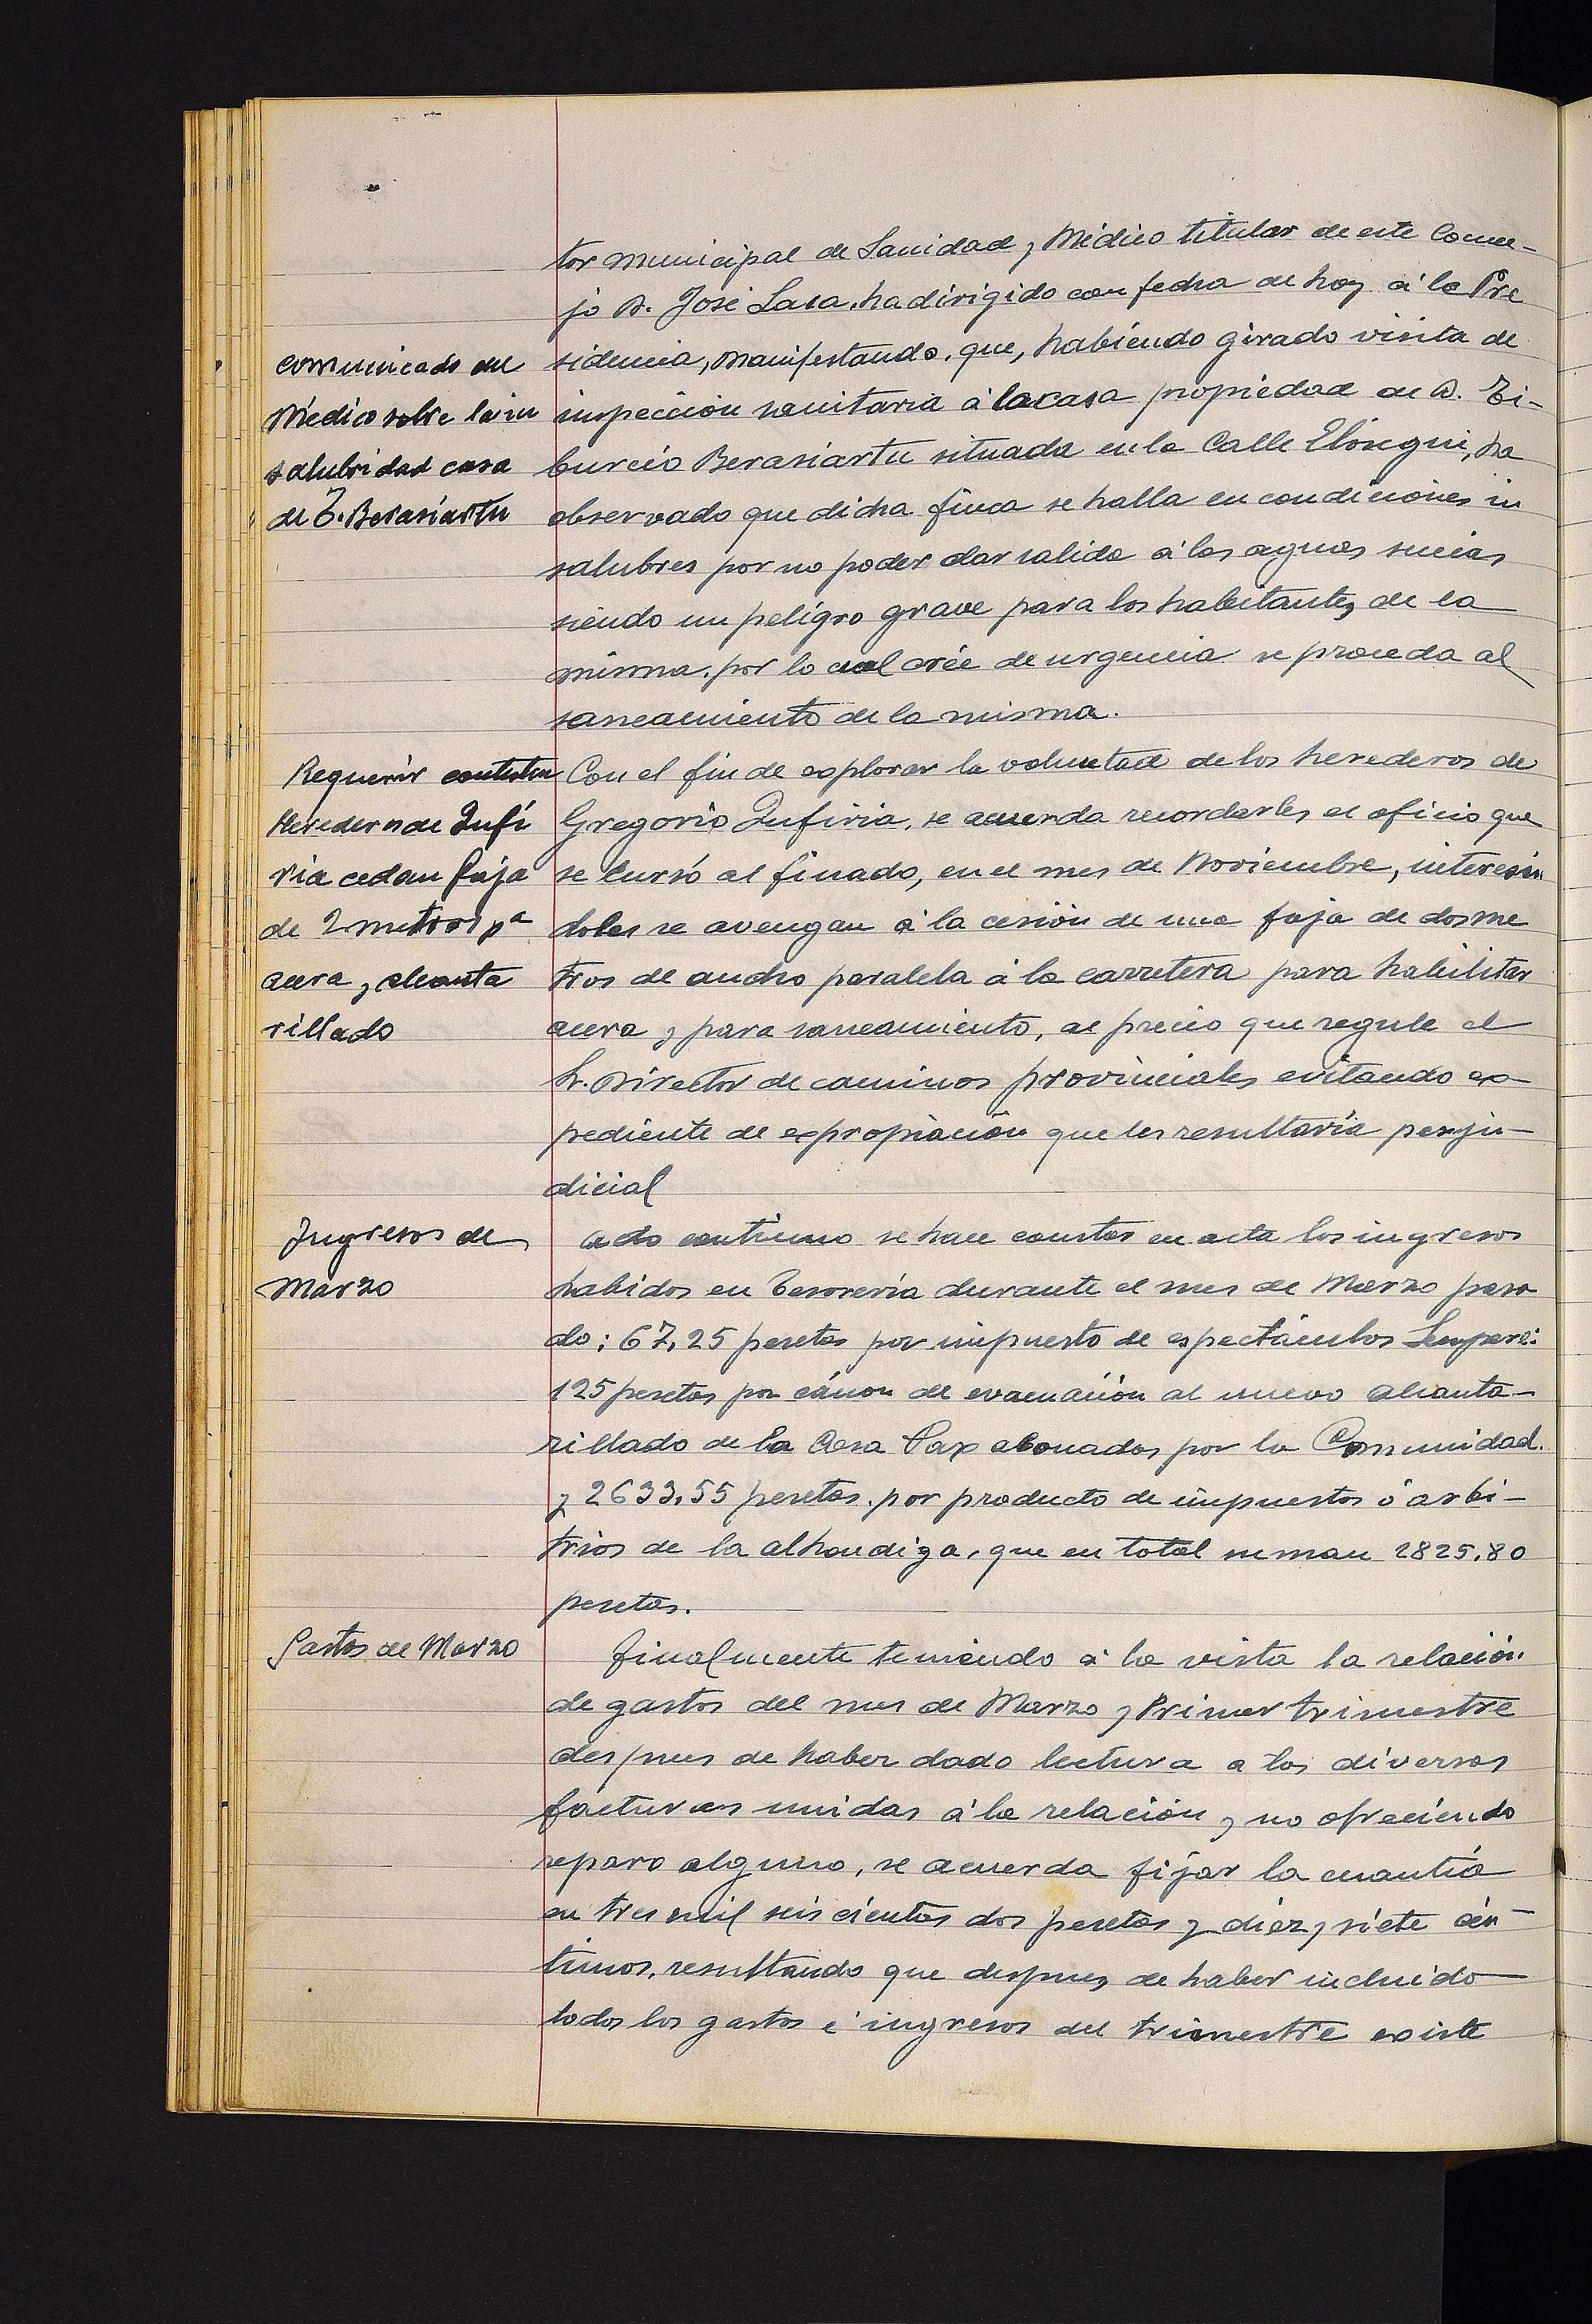 tor municipal de Sanidad y Médico titular de este Conce-
jo D. José Lasa, ha dirigido con fecha de hoy á la Pre
comunicado del
Médico sobre la in
salubridad casa
de T. Berasiartu
sidencia, manifestando, que, habiendo girado visita de
inspección sanitaria á la casa propiedad de D. Ti-
burcio Berasiartu situada en la Calle Elósegui, ha
observado que dicha finca se halla en condiciones in
salubres por no poder dar salida á las aguas sucias
siendo un peligro grave para los habitantes de la
misma, por lo cual crée de urgencia se proceda al
saneamiento de la misma.
Requerir
Herederos de Zufi
ria cedan faja
de 2 metros pª
acera y alcanta
rillado
Con el fin de explorar la voluntad de los herederos de
Gregorio Zufiria, se acuerda recordarles el oficio que
se cursó al finado, en el mes de Noviembre, interesán
doles se avengan á la cesión de una faja de dos me
tros de ancho paralela á la carretera para habilitar
acera y para saneamiento, al precio que regule el
Sr. Director de caminos provinciales evitando ex-
pediente de expropiación que les resultaría perju-
dicial
Ingresos de
Marzo
Acto continuo se hace constar en acta los ingresos
habidos en Tesorería durante el mes de Marzo pasa
do: 67,25 pesetas por impuesto de espectáculos
125 pesetas por cánon de evacuación al nuevo alcanta-
rillado de la Casa Pax abonadas por la Comunidad.
y 2633,55 pesetas, por producto de impuestos ó arbi-
trios de la alhondiga, que en total suman 2825,80
pesetas.
Gastos de Marzo
Finalmente teniendo á la vista la relación
de gastos del mes de Marzo y Primer trimestre
despues de haber dado lectura a las diversas
facturas unidas á la relación y no ofreciendo
reparo alguno, se acuerda fijar la cuantía
en tres mil seis cientas dos pesetas y diez y siete cén-
timos, resultando que despues de haber incluido
todos los gastos é ingresos del trimestre existe